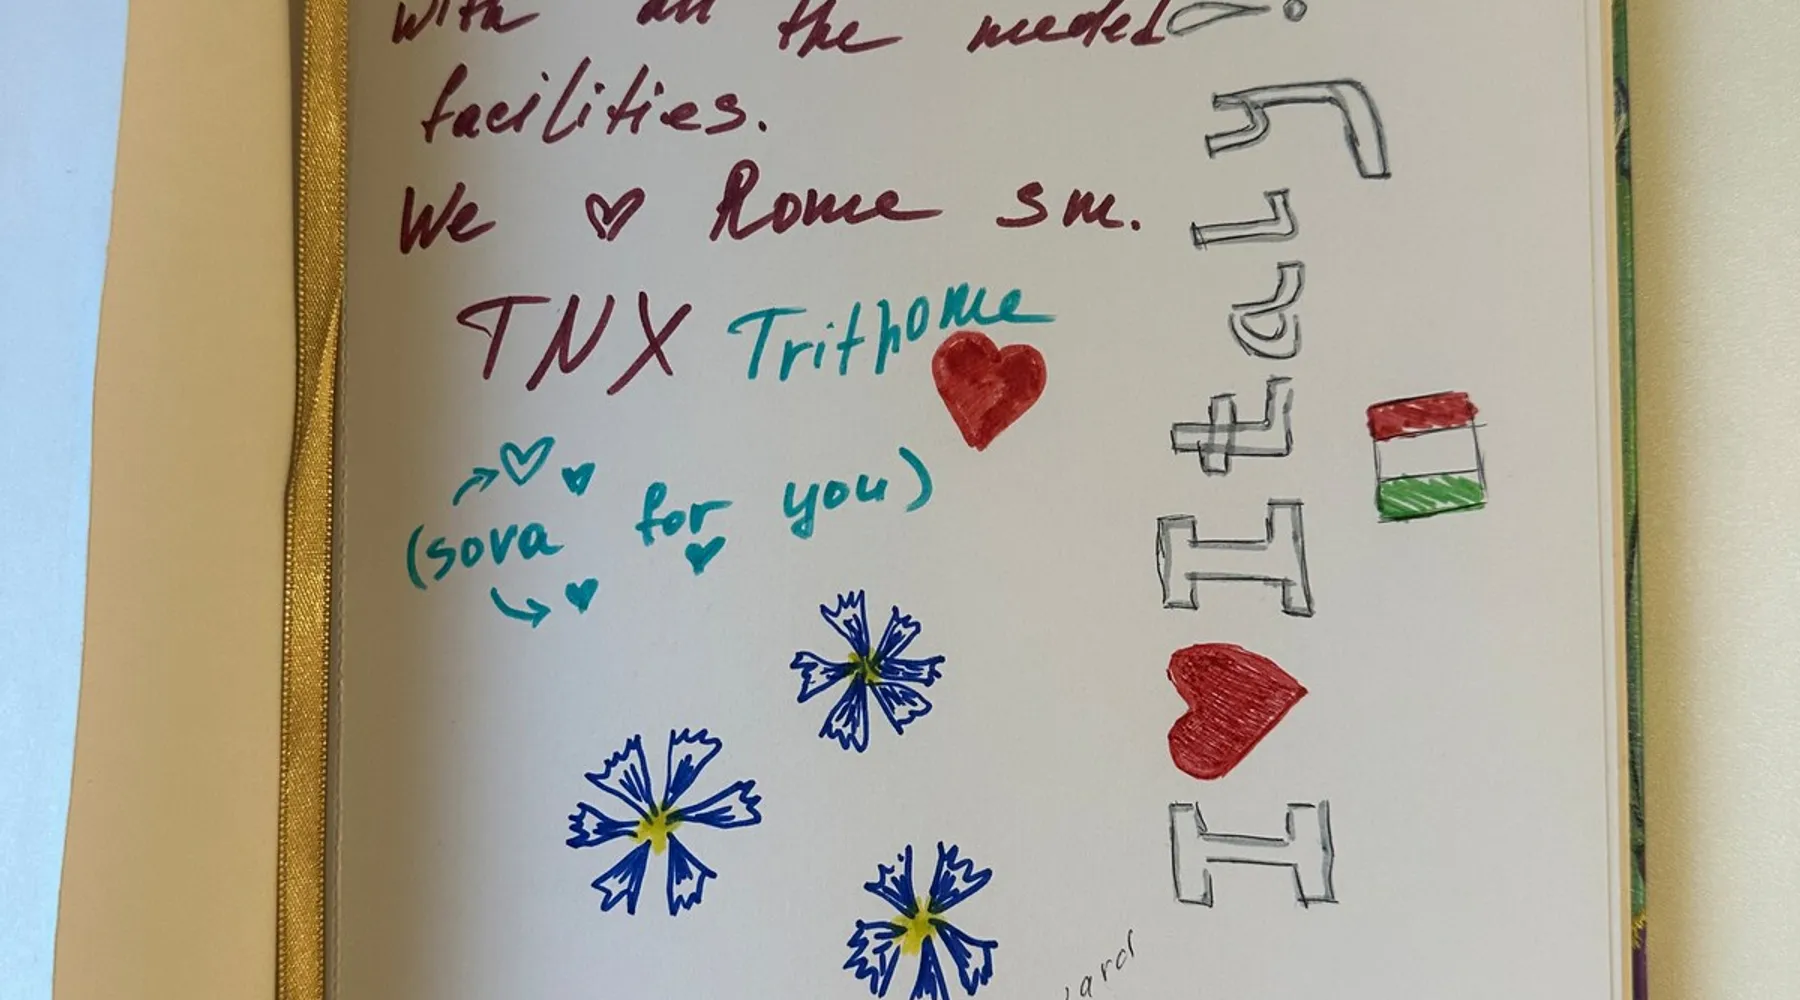 with all the needed
facilities.
We ♡ Rome sm.
TNX Trithome
(sova for you)
I ♥ Italy!